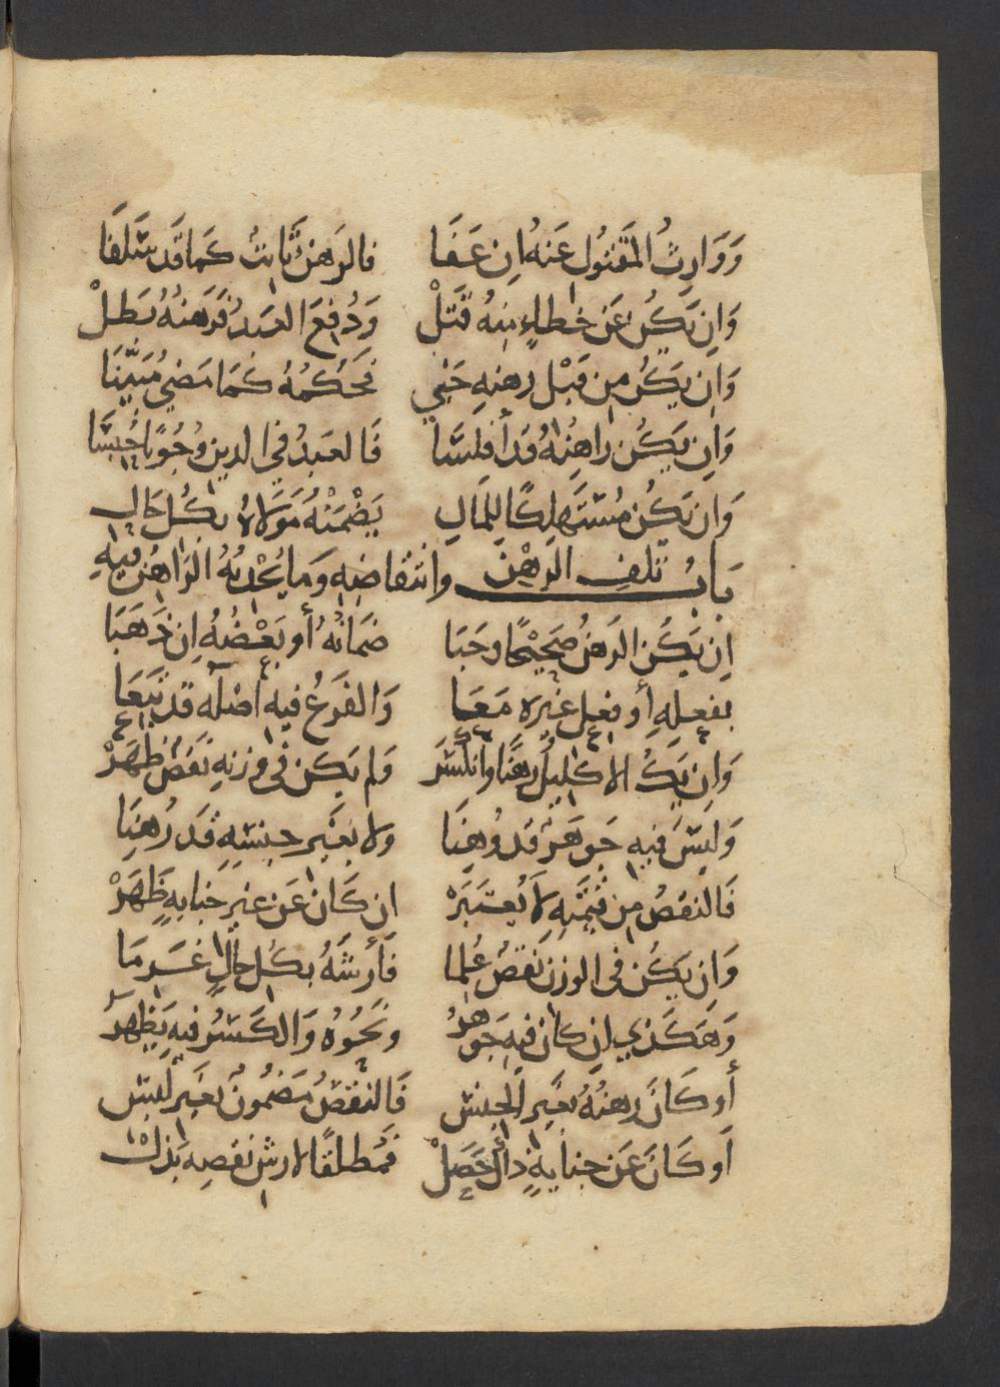 وَوَارِثُ المَقْتُولِ عَنهُ اِن عَفَا فالرَهنُ ثَابِتٌ كَمَا قَد سَلَفَا
وَاِن يَكُن عَن خَطاءٍ مِنهُ قَتَلْ وَدُفِعَ العَبدُ فَرَهنُهُ بَطَلْ
وَاِن يَكُن مِن قَبْلِ رهنِهِ جَنِي فَحُكمُهُ كَمَا مَضي مُبَيَّنَا
وَاِن يَكُن راهِنُهُ قَد أَفلَسَا فَالعَبدُ في الدين وُجُوبًا حُبِسَا
وَاِن يَكُن مُسْتَهلِكًا لِلمَالِ يَضْمَنْهُ مَوَلاهُ بكُلِ حَالِ
بَابُ تَلَفِ الرَهْنِ وانتقاضِهِ وَمَا يُحْدِثُهُ الرَاهِنُ فِيهِ
اِن يَكُن الرَهنُ صَحِيْحًا وجَبَا ضمَانُهُ أو بَعْضُهُ اِن ذَهَبَا
بِفعلِهِ أو فعلِ غَيرِه مَعَا وَالفَرعُ فيهِ اصْلَه قد تَبِعَا
وَاِن يَكُ الاكليلُ رهنًا وانكَسَر وَلم يَكن في وزنِهِ نَقصٌ ظَهَرْ
وَلَيسَ فيهِ جَوهَرٌ قد رُهِنَا ولا بغَير جِنسِهِ قَد رُهِنَا
فَالنقصُ مِن قيمَتِهِ لاَ يُعتَبَرْ اِن كَانَ عَن غيرِ جنايةٍ ظَهَرْ
وَاِن يَكُن في الوزنِ نَقصٌ عُلِما فَأَرشُهُ بكُلِ حالٍ غَرِمَا
وَهَكَذي اِن كان فيهِ جَوهرُ ونَحوُهُ وَالكَسرُ فيهِ يَظهرُ
أو كَانَ رهنُهُ بغَيرِ الجنسِ فَالنَقصُ مَضمُونٌ بغَيرِ لَبسِ
أَو كَانَ عَن جنايةٍ ذاكَ حَصَلْ فمُطلَقًا لارشِ نقصِهِ بَذَلْ